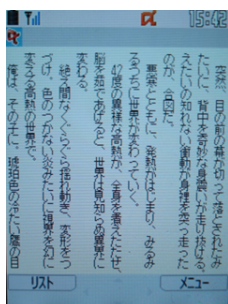 15:42
突然、目の前の幕が切って落とされたみ
たいに、背中を奇妙な身震いが走り抜ける。
えたいの知れない衝動が身裡を突っ走った
のが、合図だ。
悪寒とともに、発熱がはじまり、みるみ
るうちに世界が変わっていく。
42度の異様な高熱が、全身を煮えたたせ、
脳を茹であげると、世界は見知らぬ異界に
変わる。
絶え間なくぐらぐら揺れ動き、変形をつ
づけ、色のつかない炎みたいに視界を幻に
変える高熱の世界で、
俺は、その子に、琥珀色の冷たい鷹の目
リスト
メニュー